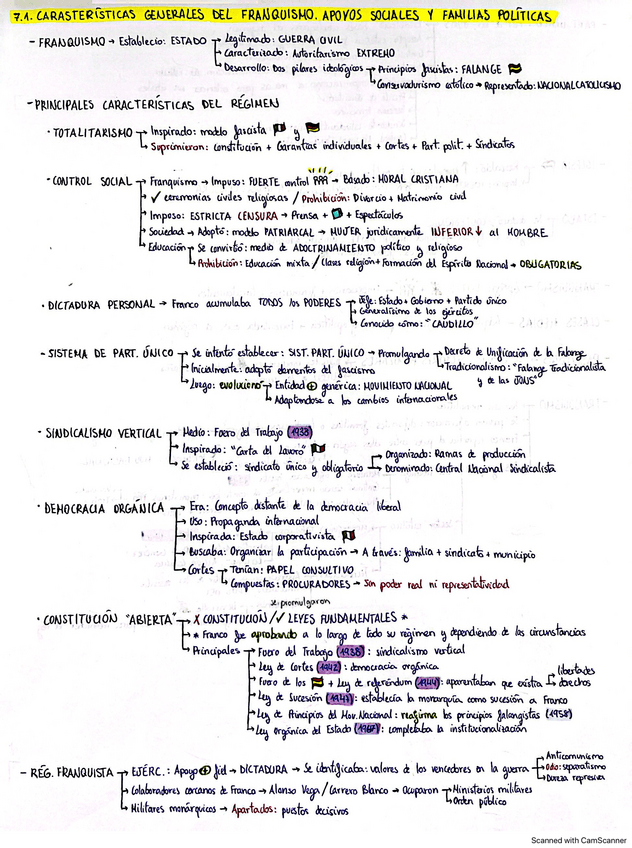 7.1. CARASTERÍSTICAS GENERALES DEL FRANQUISMO. APOYOS SOCIALES Y FAMILIAS POLÍTICAS
- FRANQUISMO → Estableció: ESTADO → Legitimado: GUERRA CIVIL
→ Caracterizado: Autoritarismo EXTREMO
→ Desarrollo: Dos pilares ideológicos → Principios fascistas: FALANGE
→ Conservadurismo católico → Representado: NACIONALCATOLICISMO
- PRINCIPALES CARACTERÍSTICAS DEL RÉGIMEN
· TOTALITARISMO → Inspirado: modelo fascista y
→ Suprimieron: constitución + Garantías individuales + Cortes + Part. polít. + Sindicatos
· CONTROL SOCIAL → Franquismo → Impuso: FUERTE control → Basado: MORAL CRISTIANA
→ ✓ ceremonias civiles religiosas / Prohibición: Divorcio + Matrimonio civil
→ Imposo: ESTRICTA CENSURA → Prensa + + Espectáculos
→ Sociedad → Adoptó: modelo PATRIARCAL → MUJER jurídicamente INFERIOR ↓ al HOMBRE
→ Educación → Se convirtió: medio de ADOCTRINAMIENTO político y religioso
→ Prohibición: Educación mixta / Clases religión + Formación del Espíritu Nacional → OBLIGATORIAS
· DICTADURA PERSONAL → Franco acumulaba TODOS los PODERES → Jefe: Estado + Gobierno + Partido único
→ Generalísimo de los ejércitos
→ Conocido cómo: "CAUDILLO"
· SISTEMA DE PART. ÚNICO → Se intentó establecer: SIST. PART. ÚNICO → Promulgando → Decreto de Unificación de la Falange
→ Inicialmente: adoptó elementos del fascismo → Tradicionalismo: "Falange Tradicionalista
y de las JONS"
→ Luego: evolucionó → Entidad ⊕ genérica: MOVIMIENTO NACIONAL
→ Adaptándose a los cambios internacionales
· SINDICALISMO VERTICAL → Medio: Fuero del Trabajo (1938)
→ Inspirado: "Carta del Lavoro"
→ Se estableció: sindicato único y obligatorio → Organizado: Ramas de producción
→ Denominado: Central Nacional Sindicalista
· DEMOCRACIA ORGÁNICA → Era: Concepto distante de la democracia liberal
→ Uso: Propaganda internacional
→ Inspirada: Estado corporativista
→ Buscaba: Organizar la participación → A través: familia + sindicato + municipio
→ Cortes → Tenían: PAPEL CONSULTIVO
→ Compuestas: PROCURADORES → Sin poder real ni representatividad
se promulgaron
· CONSTITUCIÓN "ABIERTA" → X CONSTITUCIÓN / ✓ LEYES FUNDAMENTALES *
→ * Franco fue aprobando a lo largo de todo su régimen y dependiendo de las circunstancias
→ Principales → Fuero del Trabajo (1938): sindicalismo vertical
→ Ley de Cortes (1942): democracia orgánica
→ Fuero de los + Ley de referéndum (1944): aparentaban que existía → libertades
→ derechos
→ Ley de Sucesión (1947): establecía la monarquía como sucesión a Franco
→ Ley de Principios del Mov. Nacional: reafirma los principios falangistas (1958)
→ Ley Orgánica del Estado (1967): completaba la institucionalización
- RÉG. FRANQUISTA → EJÉRC.: Apoyo ⊕ fiel → DICTADURA → Se identificaba: valores de los vencedores en la guerra → Anticomunismo
→ Odio: separatismo
→ Dureza represiva
→ Colaboradores cercanos de Franco → Alonso Vega / Carrero Blanco → Ocuparon → Ministerios militares
→ Orden público
→ Militares monárquicos → Apartados: puestos decisivos
Scanned with CamScanner